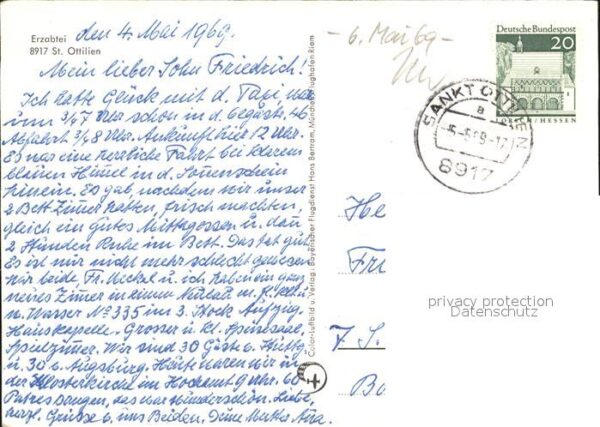 Erzabtei
8917 St. Ottilien
den 4. Mai 1969.
Mein lieber Sohn Friedrich!
Ich hatte Glück mit d. Taxi, war
um 3/47 Uhr schon in d. 46
Abfahrt 3/48 Uhr. Ankunft hier 12 Uhr.
Es war eine herzliche Fahrt bei klarem
blauen Himmel in d. Sonnenschein
hinein. Es gab, nachdem wir unser
2 Bett Zimmer hatten, frisch machten,
gleich ein gutes Mittagessen u. dan
2 Stunden Ruhe im Bett. Das tat gut
Es ist mir nicht mehr schlecht gewesen
Wir beide, Fr. u. ich haben ein ganz
neues Zimer in einem Neubau m. k. u.
u. Wasser No 335 im 3. Stock Aufzug.
Hauskapelle. Grosser u. kl. Speisesaal,
Spielzimer. Wir sind 30 Gäste v.
u. 30 v. Augsburg. Heute waren wir in
der Klosterkirche im Hochamt 9 Uhr. 60
Patres sangen, das war wunderschön. Liebe,
herzl. Grüsse v. uns Beiden. Deine Mutter
Color-Luftbild u. Verlag: Bayerischer Flugdienst Hans Bertram, München Flughafen Riem
- 6. Mai 69 -
Deutsche Bundespost
20
LORSCH/HESSEN
SANKT OTTILIEN
a
-5.-5.69-17
8917
He
Fri
7 S.
Bo
privacy protection
Datenschutz